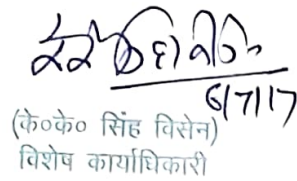 6/7/17
(के०के० सिंह विसेन)
विशेष कार्याधिकारी